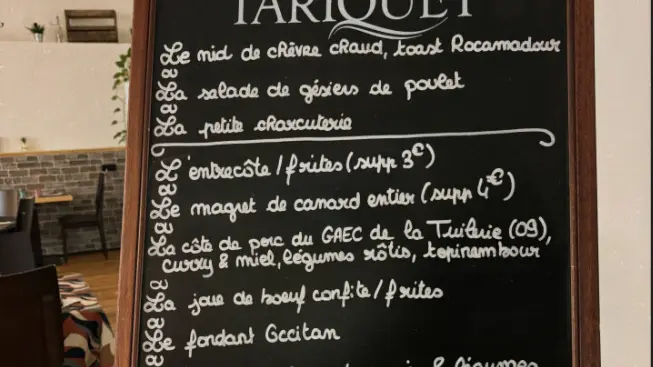 TARIQUET
Le nid de chèvre chaud, toast Rocamadour
La salade de gésiers de poulet
La petite charcuterie
L'entrecôte / frites (supp 3€)
Le magret de canard entier (supp 4€)
La côte de porc du GAEC de la Tuilerie (09),
curry & miel, légumes rôtis, topinambour
La joue de boeuf confite / frites
Le fondant Occitan
& légumes